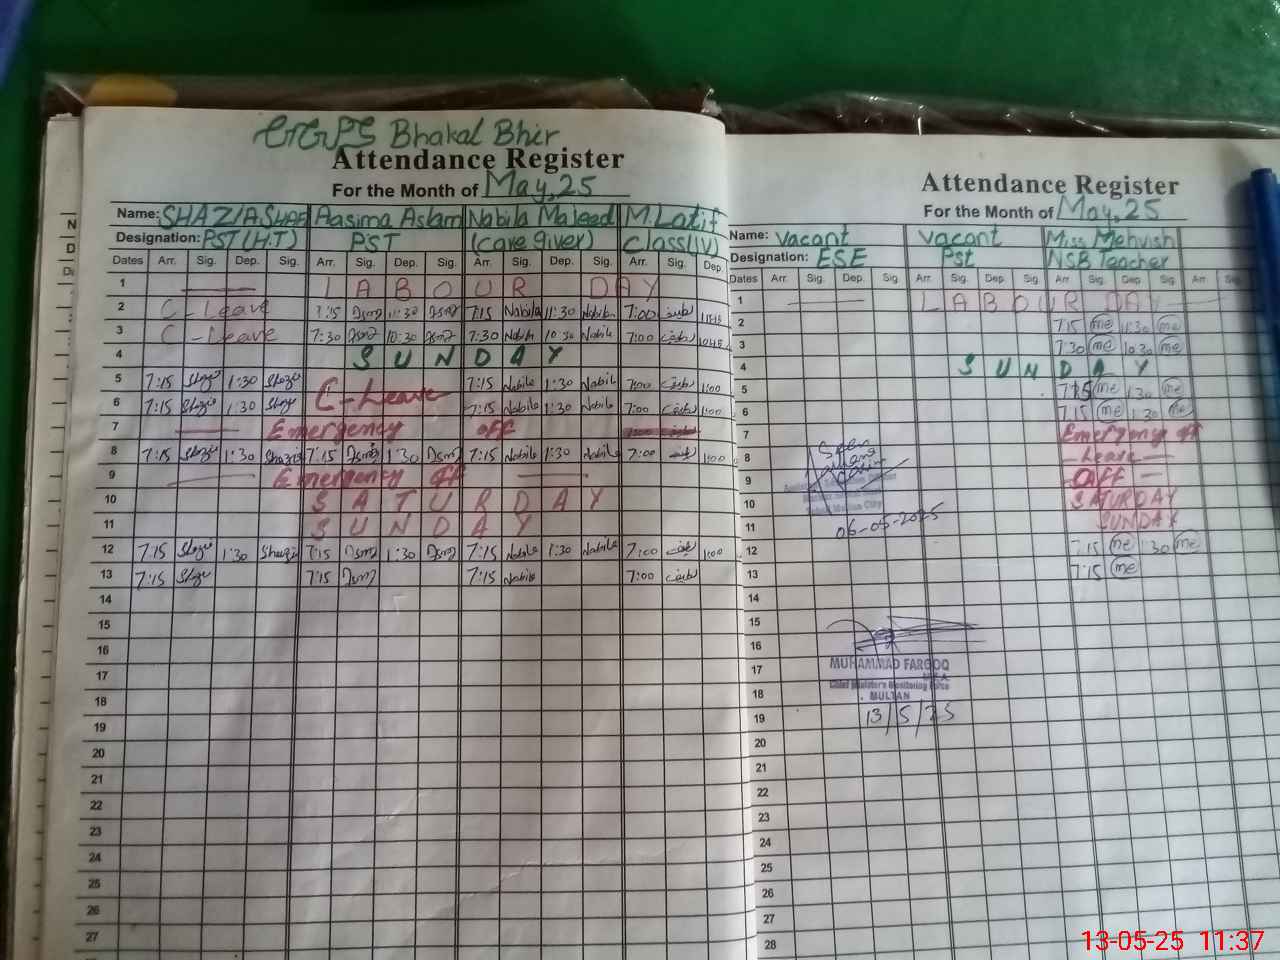 GGPS Bhakal Bhir
Attendance Register
For the Month of May,25
Name: SHAZIA SHAFI Aasima Aslam Nabila Majeed M.Latif
Designation: PST(H.T) PST (care giver) Class(IV)
Dates Arr. Sig. Dep. Sig. Arr. Sig. Dep. Sig. Arr. Sig. Dep. Sig. Arr. Sig. Dep.
1 LABOUR DAY
2 C-Leave 7:15 11:30 7:15 Nabila 11:30 Nabila 7:00 لطیف
3 C-Leave 7:30 10:30 7:30 Nabila 10:30 Nabila 7:00 لطیف
4 SUNDAY
5 7:15 1:30 C-Leave 7:15 Nabila 1:30 Nabila 7:00 لطیف 1:00
6 7:15 1:30 7:15 Nabila 1:30 Nabila 7:00 لطیف 1:00
7 Emergency off
8 7:15 1:30 7:15 1:30 7:15 Nabila 1:30 Nabila 7:00 لطیف 1:00
9 Emergency off
10 SATURDAY
11 SUNDAY
12 7:15 1:30 7:15 1:30 7:15 Nabila 1:30 Nabila 7:00 لطیف 1:00
13 7:15 7:15 7:15 Nabila 7:00 لطیف
14
15
16
17
18
19
20
21
22
23
24
25
26
27
Attendance Register
For the Month of May,25
Name: Vacant Vacant Miss Mehvish
Designation: ESE Pst NSB Teacher
Dates Arr. Sig. Dep. Sig. Arr. Sig. Dep. Sig. Arr. Sig. Dep. Sig. Arr. Sig.
1 LABOUR DAY
2 7:15 me 11:30 me
3 7:30 me 10:30 me
4 SUNDAY
5 7:15 me 1:30 me
6 7:15 me 1:30 me
7 Emergency off
8 Seen Leave
9 OFF
10 SATURDAY
11 06-05-2025 SUNDAY
12 7:15 me 1:30 me
13 7:15 me
14
15
16
17 MUHAMMAD FAROOQ
M.E.A
Chief Minister's Monitoring Force
18 MULTAN
19 13/5/25
20
21
22
23
24
25
26
27
28
13-05-25 11:37